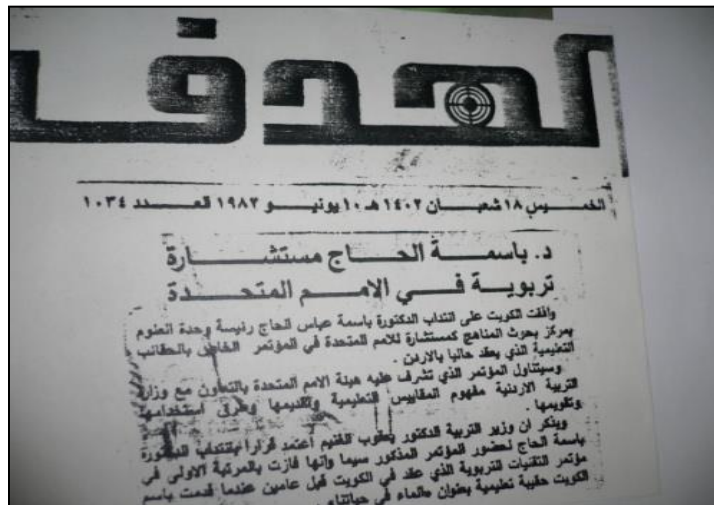 الهدف
الخميس ١٨ شعبان ١٤٠٢ هـ ١٠ يونيو ١٩٨٢ العدد ١٠٣٤
د. باسمة الحاج مستشارة
تربوية في الامم المتحدة
وافقت الكويت على انتداب الدكتورة باسمة عباس الحاج رئيسة وحدة العلوم
بمركز بحوث المناهج كمستشارة للامم المتحدة في المؤتمر الخاص بالحقائب
التعليمية الذي يعقد حاليا بالاردن .
وسيتناول المؤتمر الذي تشرف عليه هيئة الامم المتحدة بالتعاون مع وزارة
التربية الاردنية مفهوم المقاييس التعليمية وتقديمها وطرق استخدامها
وتقويمها .
ويذكر ان وزير التربية الدكتور يعقوب الغنيم اعتمد قرارا بانتداب الدكتورة
باسمة الحاج لحضور المؤتمر المذكور سيما وأنها فازت بالمرتبة الاولى في
مؤتمر التقنيات التربوية الذي عقد في الكويت قبل عامين عندما قدمت باسم
الكويت حقيبة تعليمية بعنوان «الماء في حياتنا» .